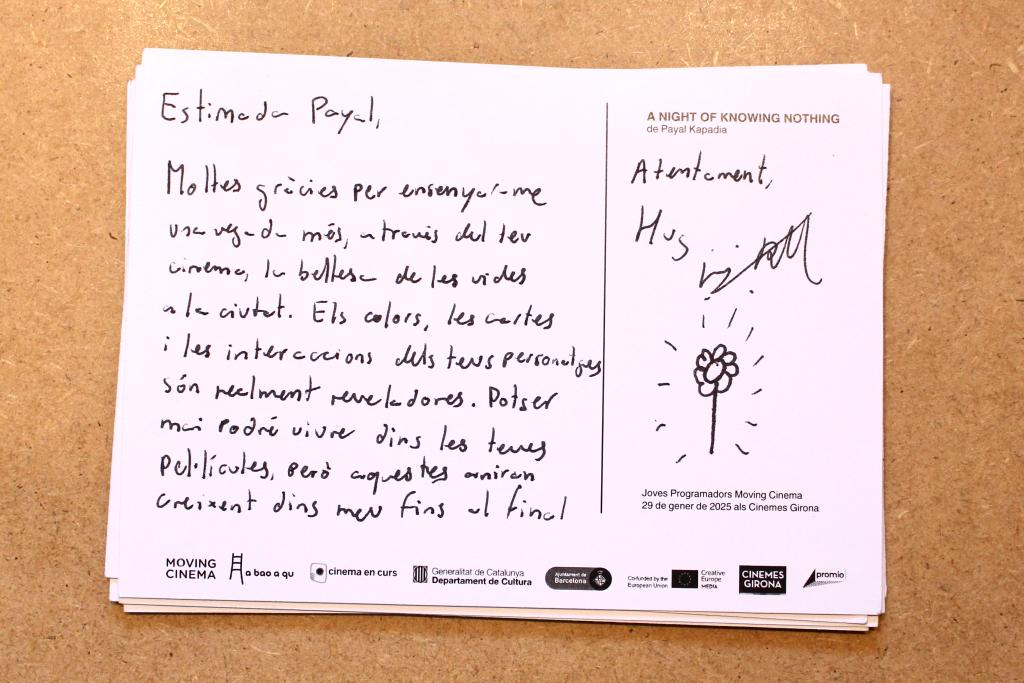 Estimada Payal,
Moltes gràcies per ensenyar-me
una vegada més, a través del teu
cinema, la bellesa de les vides
a la ciutat. Els colors, les cartes
i les interaccions dels teus personatges
són realment reveladores. Potser
mai podré viure dins les teves
pel·lícules, però aquestes aniran
creixent dins meu fins al final
A NIGHT OF KNOWING NOTHING
de Payal Kapadia
Atentament,
Hug
Joves Programadors Moving Cinema
29 de gener de 2025 als Cinemes Girona
MOVING
CINEMA
a bao a qu
cinema en curs
Generalitat de Catalunya
Departament de Cultura
Ajuntament de
Barcelona
Co-funded by the
European Union
Creative
Europe
MEDIA
CINEMES
GIRONA
promio